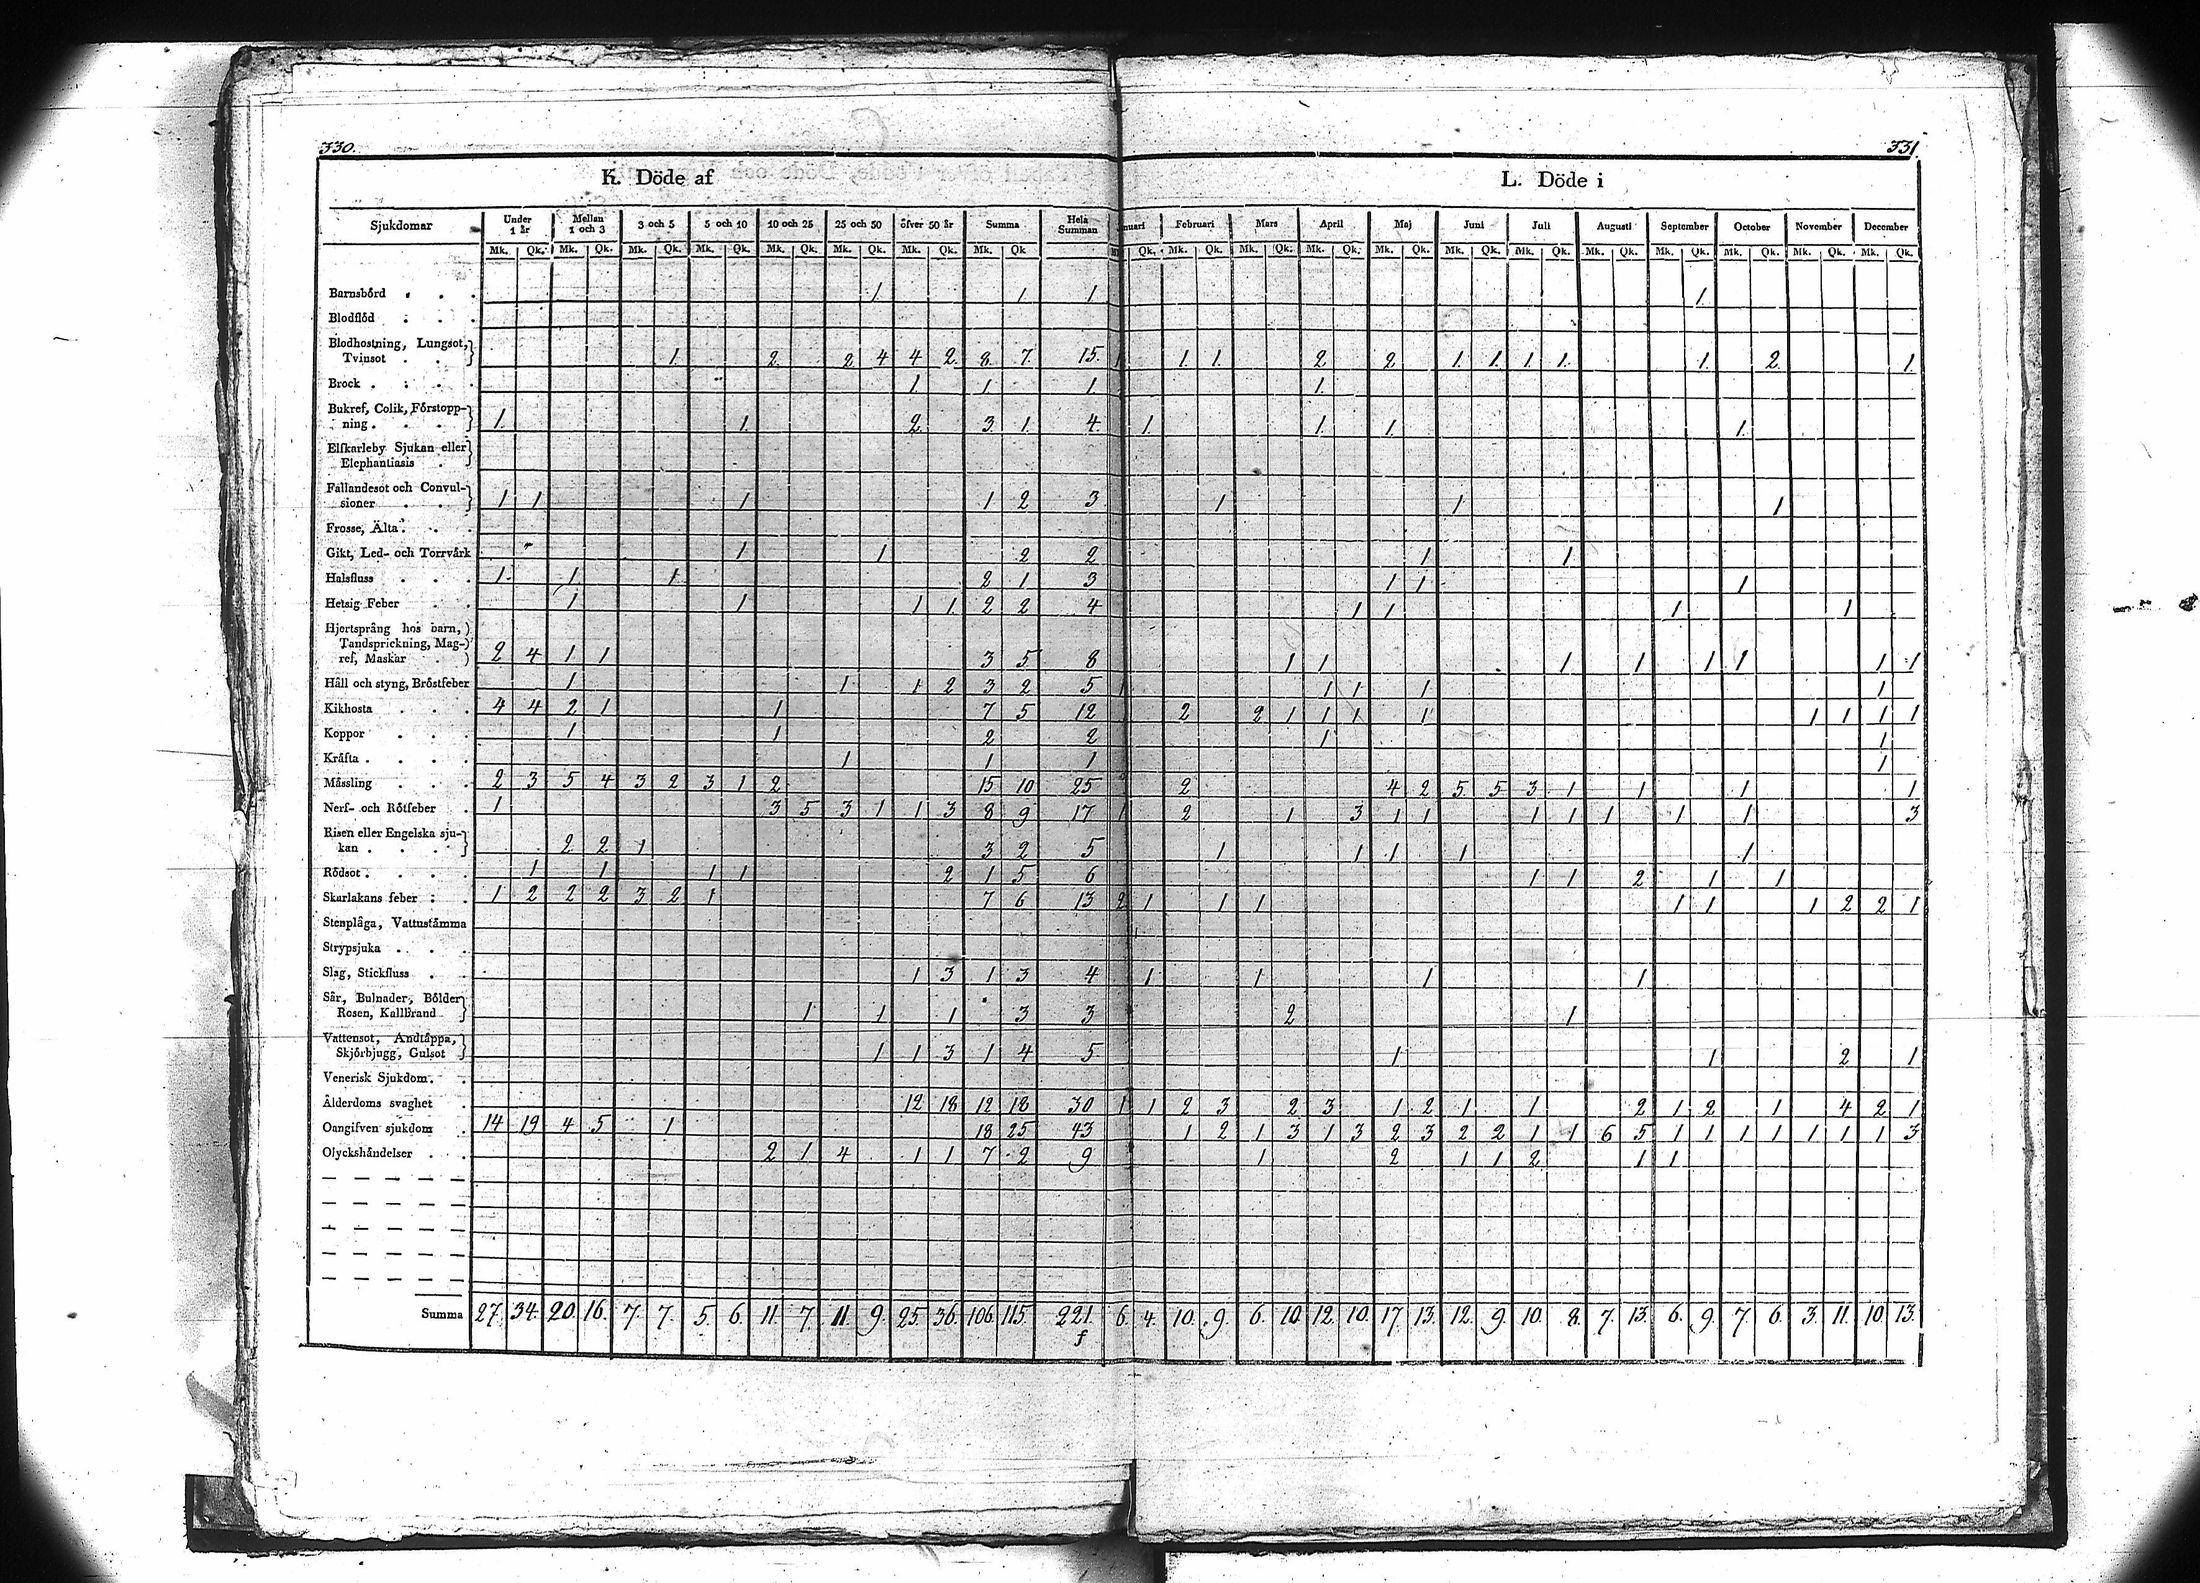 330.
331.
K. Döde af
L. Döde i
Sjukdomar Under 1 år Mellan 1 och 3 3 och 5 5 och 10 10 och 25 25 och 50 öfver 50 år Summa Hela Summan nuari Februari Mars April Maj Juni Juli Augusti September October November December
Mk. Qk. Mk. Qk. Mk. Qk. Mk. Qk. Mk. Qk. Mk. Qk. Mk. Qk. Mk. Qk Qk. Mk. Qk. Mk. Qk. Mk. Qk. Mk. Qk. Mk. Qk. Mk. Qk. Mk. Qk. Mk. Qk. Mk. Qk. Mk. Qk. Mk. Qk.
Barnsbörd . . . 1 1 1 1
Blodflöd . . .
Blodhostning, Lungsot,
Tvinsot . . 1. 2. 2 4 4 2. 8. 7. 15. 1. 1. 1. 2. 2. 1. 1. 1. 1. 1. 2. 1.
Brock . . . . 1 1 1. 1.
Bukref, Colik, Förstopp-
ning . . . 1. 1. 2. 3. 1. 4. 1. 1. 1. 1.
Elfkarleby Sjukan eller
Elephantiasis .
Fallandesot och Convul-
sioner . . 1 1 1 1 2 3 1 1 1
Frosse, Älta . .
Gikt, Led- och Torrvärk 1 1 2 2 1 1
Halsfluss . . . 1 1 1 2 1 3 1 1 1
Hetsig Feber . . 1 1 1 1 2 2 4 1 1 1 1
Hjertsprång hos barn,
Tandsprickning, Mag-
ref, Maskar . 2 4 1 1 3 5 8 1 1 1 1 1 1 1 1
Håll och styng, Bröstfeber 1 1 1 2 3 2 5 1 1 1 1 1
Kikhosta . . . 4 4 2 1 1 7 5 12 2 2 1 1 1 1 1 1 1 1
Koppor . . . 1 1 2 2 1 1
Kräfta . . . . 1 1 1 1
Mässling . . . 2 3 5 4 3 2 3 1 2 15 10 25 2 4 2 5 5 3 1 1 1 1
Nerf- och Rötfeber . 1 3 5 3 1 1 3 8 9 17 1 2 1 3 1 1 1 1 1 1 1 3
Risen eller Engelska sju-
kan . . . . 2 2 1 3 2 5 1 1 1 1 1
Rödsot . . . . 1 1 1 1 2 1 5 6 1 1 2 1 1
Skarlakans feber : . 1 2 2 2 3 2 1 7 6 13 2 1 1 1 1 1 1 2 2 1
Stenplåga, Vattustämma
Strypsjuka . . .
Slag, Stickfluss . . 1 3 1 3 4 1 1 1 1
Sår, Bulnader, Bölder
Rosen, Kallbrand 1 1 1 3 3 2 1
Vattensot, Andtäppa,
Skjörbjugg, Gulsot 1 1 3 1 4 5 1 1 2 1
Venerisk Sjukdom . .
Ålderdoms svaghet . 12 18 12 18 30 1 1 2 3 2 3 1 2 1 1 2 1 2 1 4 2 1
Oangifven sjukdom . 14 19 4 5 1 18 25 43 1 2 1 3 1 3 2 3 2 2 1 1 6 5 1 1 1 1 1 1 1 3
Olyckshändelser . . . 2 1 4 1 1 7 2 9 1 2 1 1 2 1 1
Summa 27. 34. 20. 16. 7. 7. 5. 6. 11. 7. 11. 9. 25. 36. 106. 115. 221. 6. 4. 10. 9. 6. 10. 12. 10. 17. 13. 12. 9. 10. 8. 7. 13. 6. 9. 7. 6. 3. 11. 10. 13.